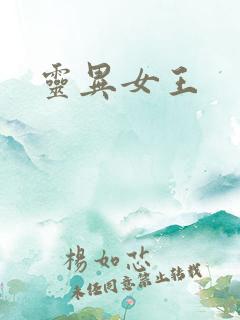 靈異女王
楊如芯
未經同意禁止轉載